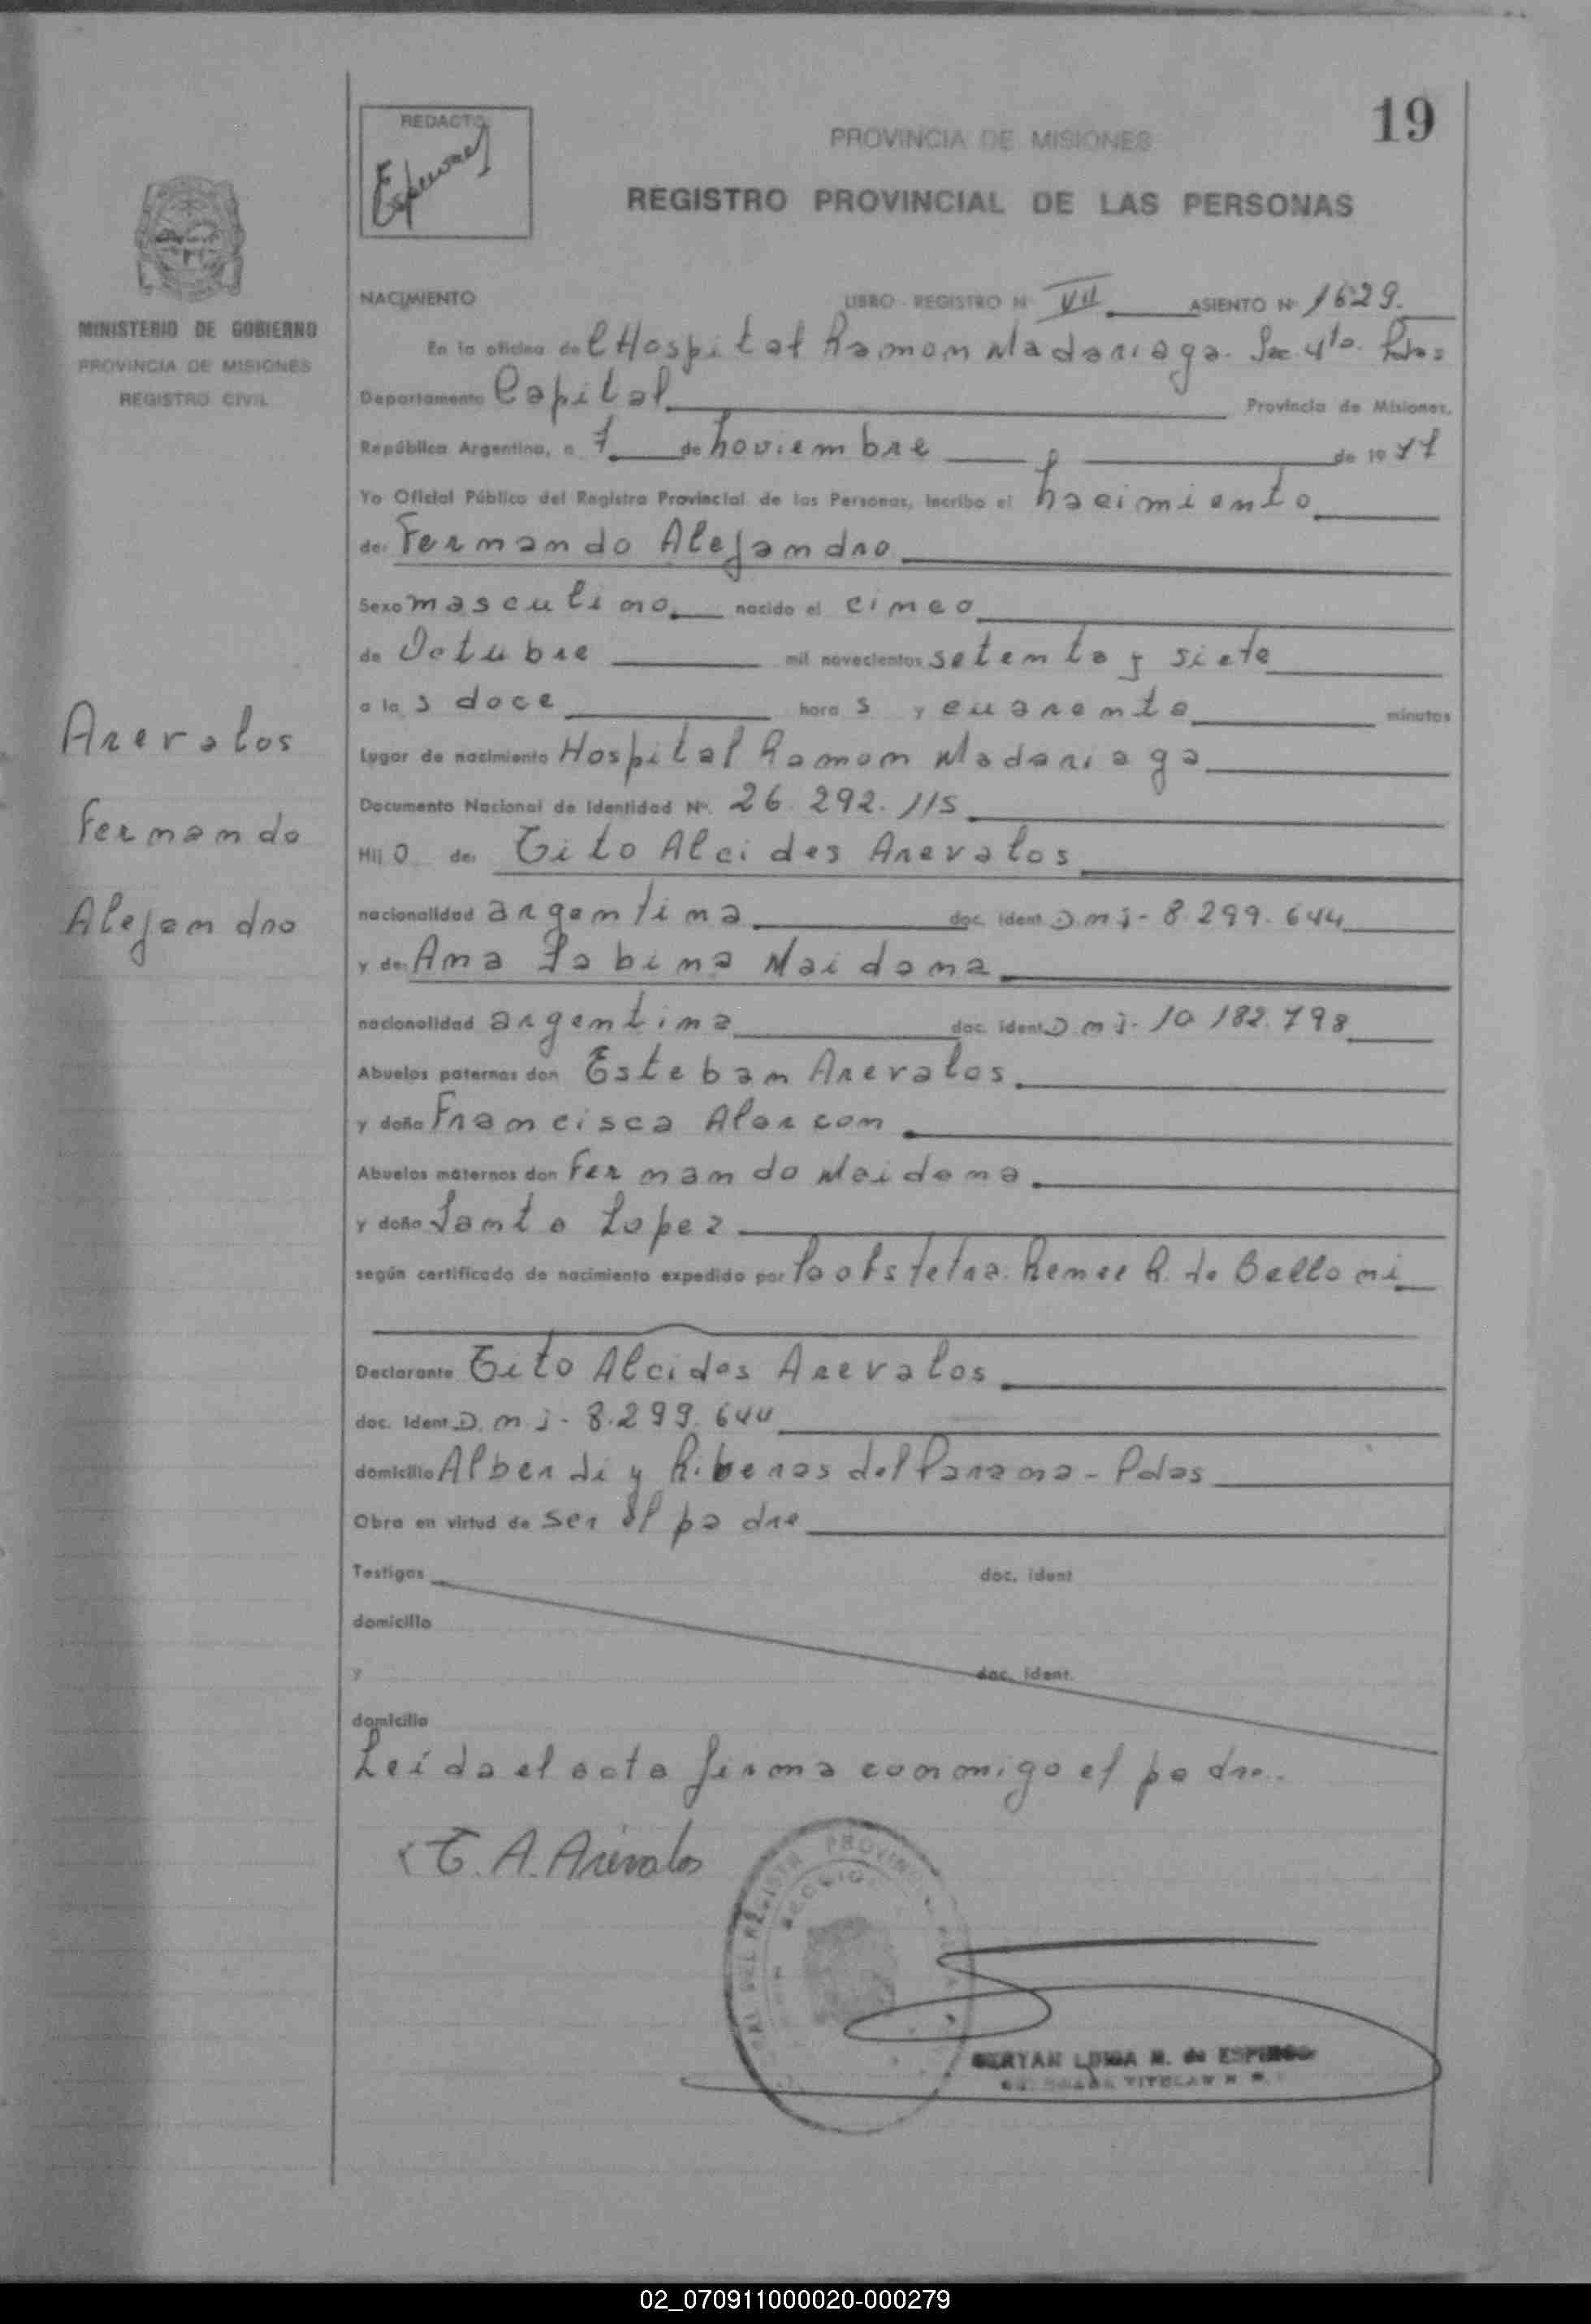 19
REDACTO
PROVINCIA DE MISIONES
REGISTRO PROVINCIAL DE LAS PERSONAS
MINISTERIO DE GOBIERNO
PROVINCIA DE MISIONES
REGISTRO CIVIL
NACIMIENTO LIBRO - REGISTRO N VII ASIENTO Nº 1629.
En la oficina del Hospital Ramon Madariaga. Sec. 4ta. Pdas
Departamento Capital Provincia de Misiones,
República Argentina, a 7 de noviembre de 1977
Yo Oficial Público del Registro Provincial de las Personas, incribo el nacimiento
de: Fernando Alejandro
Sexo masculino nacido el cinco
de Octubre mil novecientos setenta y siete
a las doce horas y cuarenta minutos
Lugar de nacimiento Hospital Ramon Madariaga
Documento Nacional de Identidad Nº. 26.292.115
Hijo de: Tito Alcides Arevalos
nacionalidad argentina doc. ident D.m.i- 8.299.644
y de: Ana Sabina Maidana
nacionalidad argentina doc. ident D.m.i- 10.182.798
Abuelos paternos don Esteban Arevalos
y doña Francisca Alarcon
Abuelos maternos don Fernando Maidana
y doña Santa Lopez
según certificado de nacimiento expedido por la obstetra. Renee R. de Belloni
Declarante Tito Alcides Arevalos
doc. Ident D.m.i- 8.299.644
domicilio Alberdi y Riberas del Parana - Pdas
Obra en virtud de ser el padre
Testigos doc. ident
domicilio
y doc. ident.
domicilio
Leída el acta firma conmigo el padre.
T. A. Arévalos
Arevalos
Fernando
Alejandro
LUISA M. de
TITULAR
02_070911000020-000279